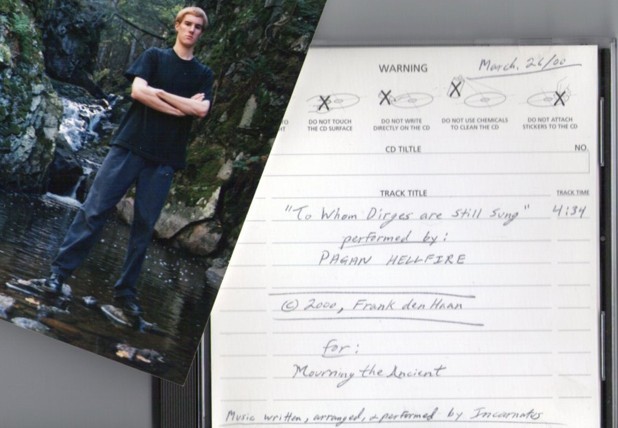 March. 26/00
WARNING
TO
HT
DO NOT TOUCH
THE CD SURFACE
DO NOT WRITE
DIRECTLY ON THE CD
DO NOT USE CHEMICALS
TO CLEAN THE CD
DO NOT ATTACH
STICKERS TO THE CD
CD TILTLE NO.
TRACK TITLE TRACK TIME
"To Whom Dirges are Still Sung" 4:34
performed by:
PAGAN HELLFIRE
© 2000, Frank den Haan
for:
Mourning the Ancient
Music written, arranged, & performed by Incarnatus